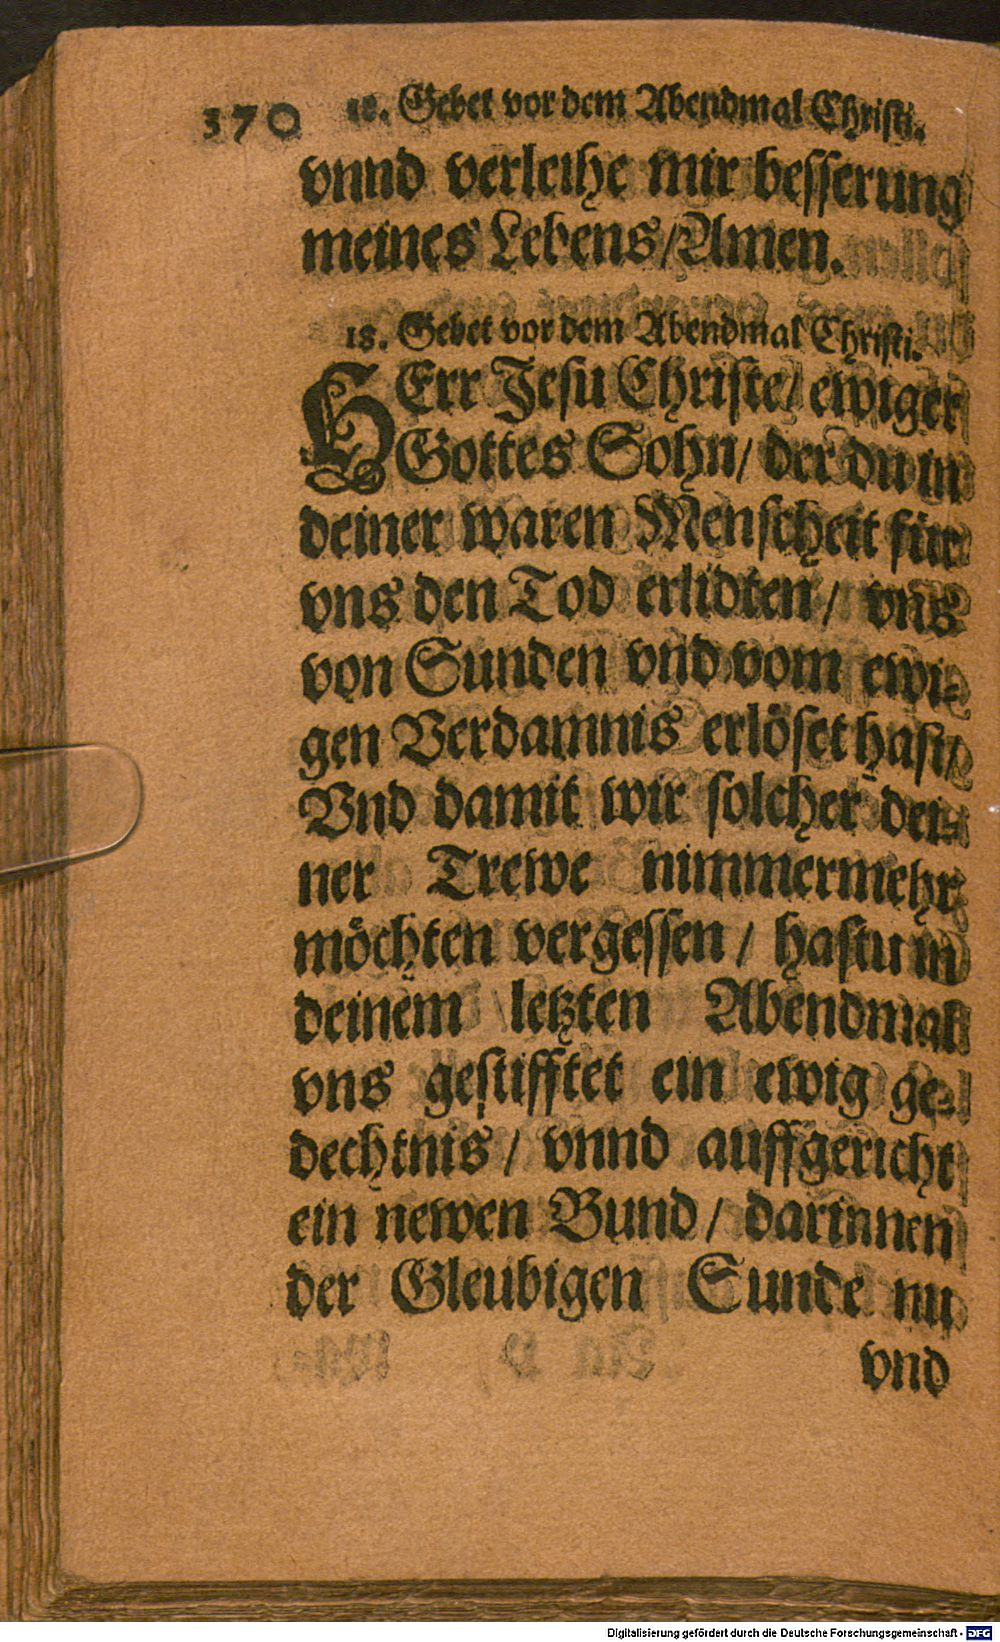 370 18. Gebet vor dem Abendmal Christi.
vnnd verleihe mir besserung
meines Lebens/Amen.
18. Gebet vor dem Abendmal Christi.
HErr Jesu Christe/ ewiger
Gottes Sohn/ der du in
deiner waren Menscheit für
vns den Tod erlidten/ vns
von Sunden vnd vom ewi-
gen Verdamnis erlöset hast/
Vnd damit wir solcher dei-
ner Trewe nimmermehr
möchten vergessen/ hastu in
deinem letzten Abendmal
vns gestifftet ein ewig ge-
dechtnis/ vnnd auffgericht
ein newen Bund/ darinnen
der Gleubigen Sunde nu
vnd
Digitalisierung gefördert durch die Deutsche Forschungsgemeinschaft - DFG